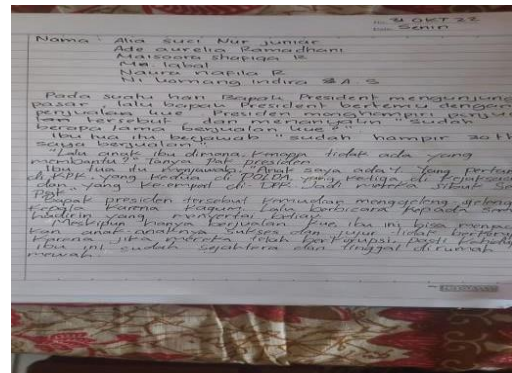 No. 31 OKT 22
Date. Senin
Nama : Alia suci Nur juniar
Ade aurelia Ramadhani
Maisaora shafiqa R
Mh. Iqbal
Naura nafila R
Ni komang indira A.S
Pada suatu hari Bapak President mengunjungi
pasar, lalu bapak President bertemu dengan
penjualan kue, Presiden menghampiri penjual
tersebut dan menanyakan "Sudah
berapa lama berjualan kue?"
Ibu tua itu berjawab sudah hampir 30 th
saya berjualan"
"Lalu anak ibu dimana. Kenapa tidak ada yang
membantu?" Tanya Pak presiden.
Ibu tua itu menjawab, "Anak saya ada 4 Yang pertama
di KPK, yang kedua di POLDA yang ketiga di Kejaksaan
dan yang ke empat di DPR. Jadi mereka sibuk Se
Pak"
Bapak presiden tersebut kemudian menggeleng geleng
kepala karena kagum, Lalu berbicara kepada semua
hadirin yang menyertai beliau.
Meskipun hanya berjualan kue, ibu ini bisa menjadi
kan anak-anaknya sukses dan jujur tidak berkorupsi
karena jika mereka telah berkorupsi, pasti kehidup
Ibu ini sudah sejahtera dan tinggal dirumah
mewah.